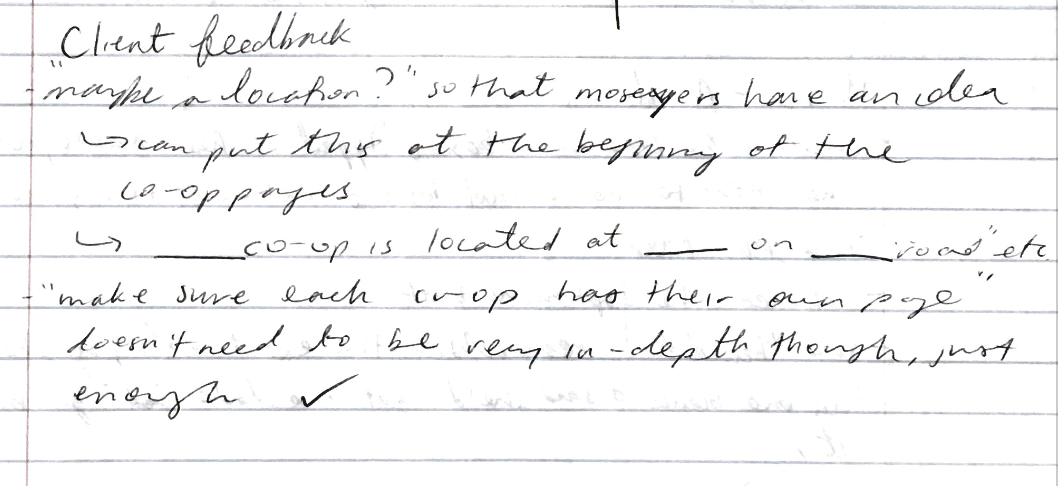 Client feedback
- "maybe a location?" so that have an idea
↳ can put this at the beginning of the
co-op pages
↳ ____ co-op is located at ____ on ____ road" etc
- "make sure each co-op has their own page"
doesn't need to be very in-depth though, just
enough ✓